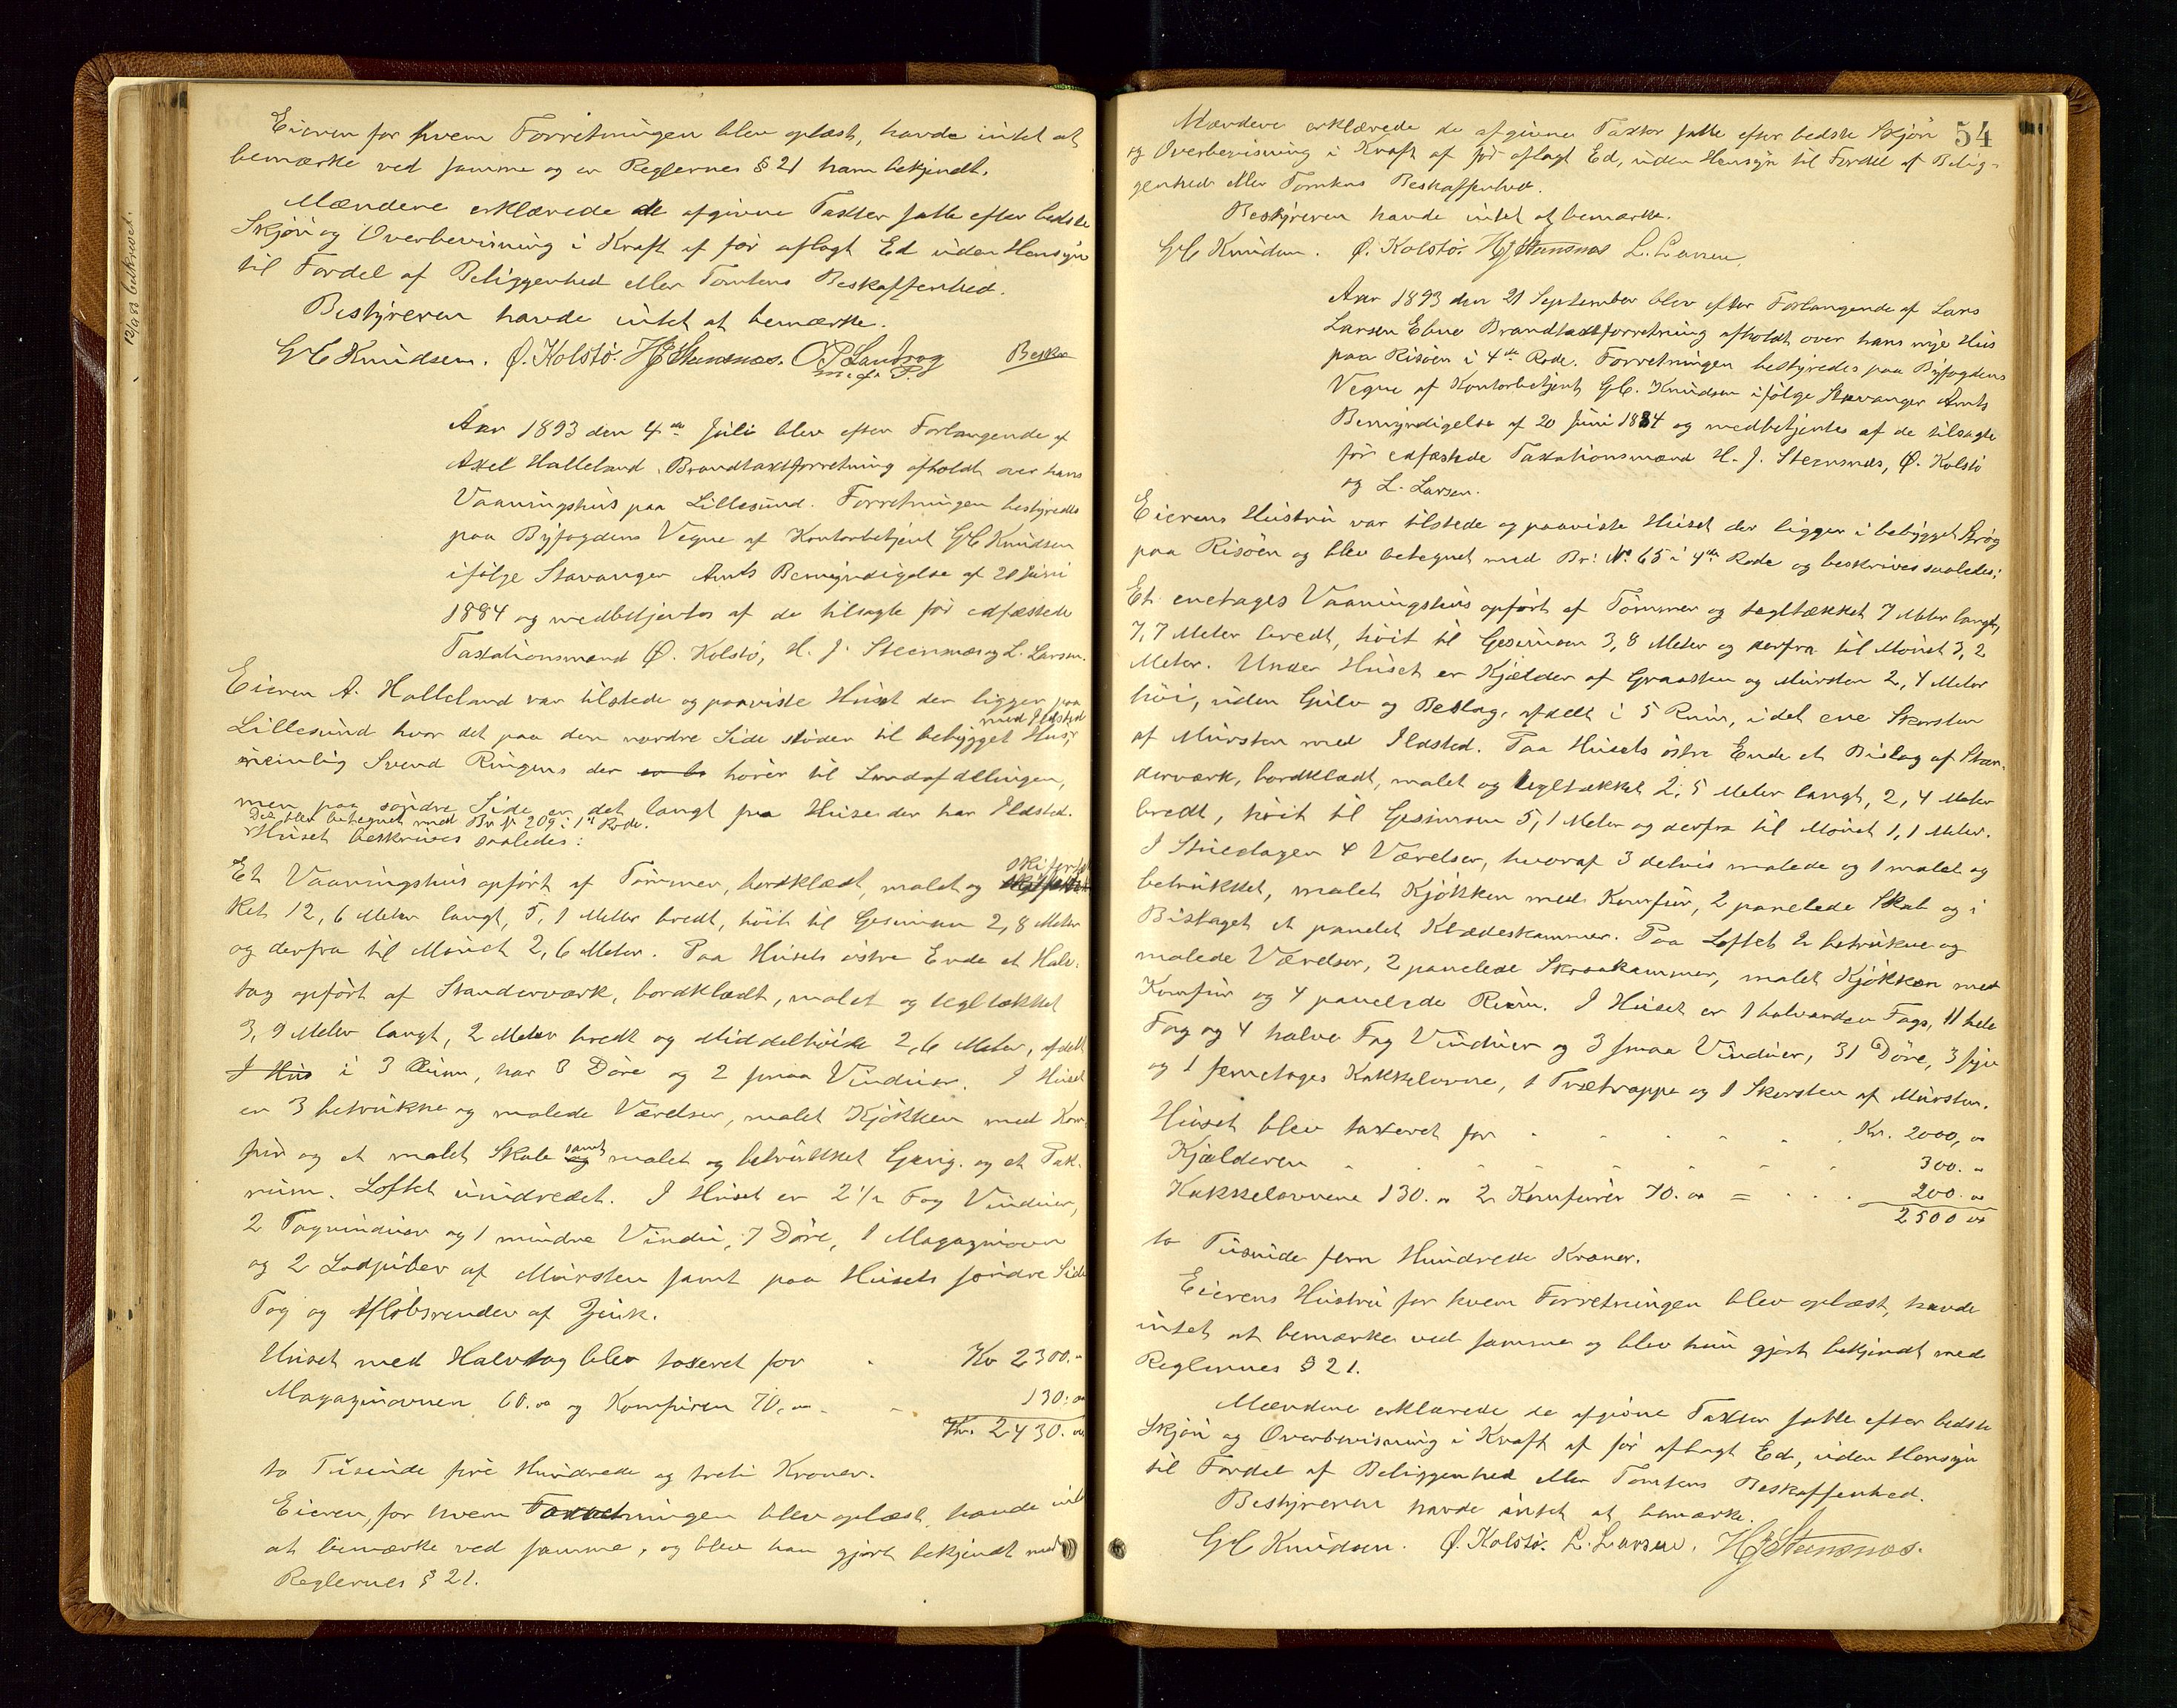 12/9 93 beskrevet.
Eieren for hvem Forretningen blev oplæst, havde intet at
bemærke ved samme og er Reglernes § 21 ham bekjendt.
Mændene erklærede de afgivne Taxter satte efter bedste
Skjøn og Overbevisning i Kraft af før aflagt Ed uden Hensyn
til Fordel af Beliggenhed eller Tomtens Beskaffenhed.
Bestyreren havde intet at bemærke.
GC Knudsen. Ø. Kolstø. HJSteensnæs.
m. f. P.
Aar 1893 den 4de Juli blev efter Forlangende af
Axel Halleland Brandtaxtforretning afholdt over hans
Vaaningshus paa Lillesund. Forretningen bestyredes
paa Byfogdens Vegne af Kontorbetjent GC Knudsen
ifølge Stavanger Amts Bemyndigelse af 20 Juni
1884 og medbetjentes af de tilsagte før edfæstede
Taxationsmænd Ø. Kolstø, H. J. Steensnæs og L. Larsen.
Eieren A. Halleland var tilstede og paaviste Huset der ligger paa
Lillesund hvor det paa den nordre Side støder til bebygget Hus, med Ildsted
nemlig Svend Ringens der hører til Landafdelingen,
men paa søndre Side er det langt fra Huse der har Ildsted.
Det blev betegnet med Br. № 209 i 1ste Rode.
Huset beskrives saaledes:
Et Vaaningshus opført af Tømmer, bordklædt, malet og skifertæk-
ket 12,6 Meter langt, 5,1 Meter bredt, høit til Gesimsen 2,8 Meter
og derfra til Mønet 2,6 Meter. Paa Husets østre Ende et Halv-
tag opført af Standerværk, bordklædt, malet og tegltækket
3,9 Meter langt, 2 Meter bredt og Middelhøide 2,6 Meter, afdelt
I Hus i 3 Rum, har 3 Døre og 2 smaa Vinduer. I Huset
er 3 betrukne og malede Værelser, malet Kjøkken med Kom-
fur og et malet Skab samt malet og betrukket Gang. og et Tak-
rum. Loftet uindredet. I Huset er 2 1/2 Fag Vinduer,
2 Tagvinduer og 1 mindre Vindu, 7 Døre, 1 Magazinovn
og 2 Lodpiber af Mursten samt paa Husets søndre Side
Tag og Afløbsrender af Zink.
Huset med Halvtag blev taxeret for Kr 2300.„
Magazinovnen 60.00 og Komfuren 70,00 130.00
Kr. 2430.00
to Tusinde fire Hundrede og treti Kroner.
Eieren, for hvem Forretningen blev oplæst, havde intet
at bemærke ved samme, og blev han gjort bekjendt med
Reglernes § 21.
54
Mændene erklærede de afgivne Taxter satte efter bedste Skjøn
og Overbevisning i Kraft af før aflagt Ed, uden Hensyn til Fordel af Belig-
genhed eller Tomtens Beskaffenhed.
Bestyreren havde intet at bemærke.
GC Knudsen. Ø. Kolstø. HJSteensnæs L. Larsen.
Aar 1893 den 21 September blev efter Forlangende af Lars
Larsen Ebne Brandtaxtforretning afholdt over hans nye Hus
paa Risøen i 4de Rode. Forretningen bestyredes paa Byfogdens
Vegne af Kontorbetjent GC. Knudsen ifølge Stavanger Amts
Bemyndigelse af 20 Juni 1884 og medbetjentes af de tilsagte
før edfæstede Taxationsmænd H. J. Steensnæs, Ø. Kolstø
og L. Larsen.
Eierens Hustru var tilstede og paaviste Huset der ligger i bebygget Strøg
paa Risøen og blev betegnet med Br: № 65 i 4de Rode og beskrives saaledes:
Et enetages Vaaningshus opført af Tømmer og tegltækket 7 Meter langt,
7,7 Meter bredt, høit til Gesimsen 3,8 Meter og derfra til Mønet 3,2
Meter. Under Huset er Kjælder af Graasten og Mursten 2,4 Meter
høi, uden Gulv og Beslag, afdelt i 5 Rum, i det ene Skorsten
af Mursten med Ildsted. Paa Husets østre Ende et Bislag af Stan-
derværk, bordklædt, malet og tegltækket 2,5 Meter langt, 2,4 Meter
bredt, høit til Gesimsen 5,1 Meter og derfra til Mønet 1,1 Meter.
I Stueetagen 4 Værelser, hvoraf 3 delvis malede og 1 malet og
betrukket, malet Kjøkken med Komfur, 2 panelede Skab og i
Bislaget et panelet Klædeskammer. Paa Loftet 2 betrukne og
malede Værelser, 2 panelede Skraakammer, malet Kjøkken med
Komfur og 4 panelede Rum. I Huset er 1 halvanden Fags, 11 hele
Fag og 4 halve Fag Vinduer og 3 smaa Vinduer, 31 Døre, 3 fyr
og 1 femetages Kakkelovne, 1 Trætrappe og 1 Skorsten af Mursten.
Huset blev taxeret for Kr. 2000,00
Kjælderen 300.„
Kakkelovnene 130.„ 2 Komfurer 70.00 = 200.00
2500 00
to Tusinde fem Hundrede Kroner.
Eierens Hustru for hvem Forretningen blev oplæst, havde
intet at bemærke ved samme og blev hun gjort bekjendt med
Reglernes § 21.
Mændene erklærede de afgivne Taxter satte efter bedste
Skjøn og Overbevisning i Kraft af før aflagt Ed, uden Hensyn
til Fordel af Beliggenhed eller Tomtens Beskaffenhed.
Bestyreren havde intet at bemærke.
GC Knudsen. Ø. Kolstø. L. Larsen. HJSteensnæs.